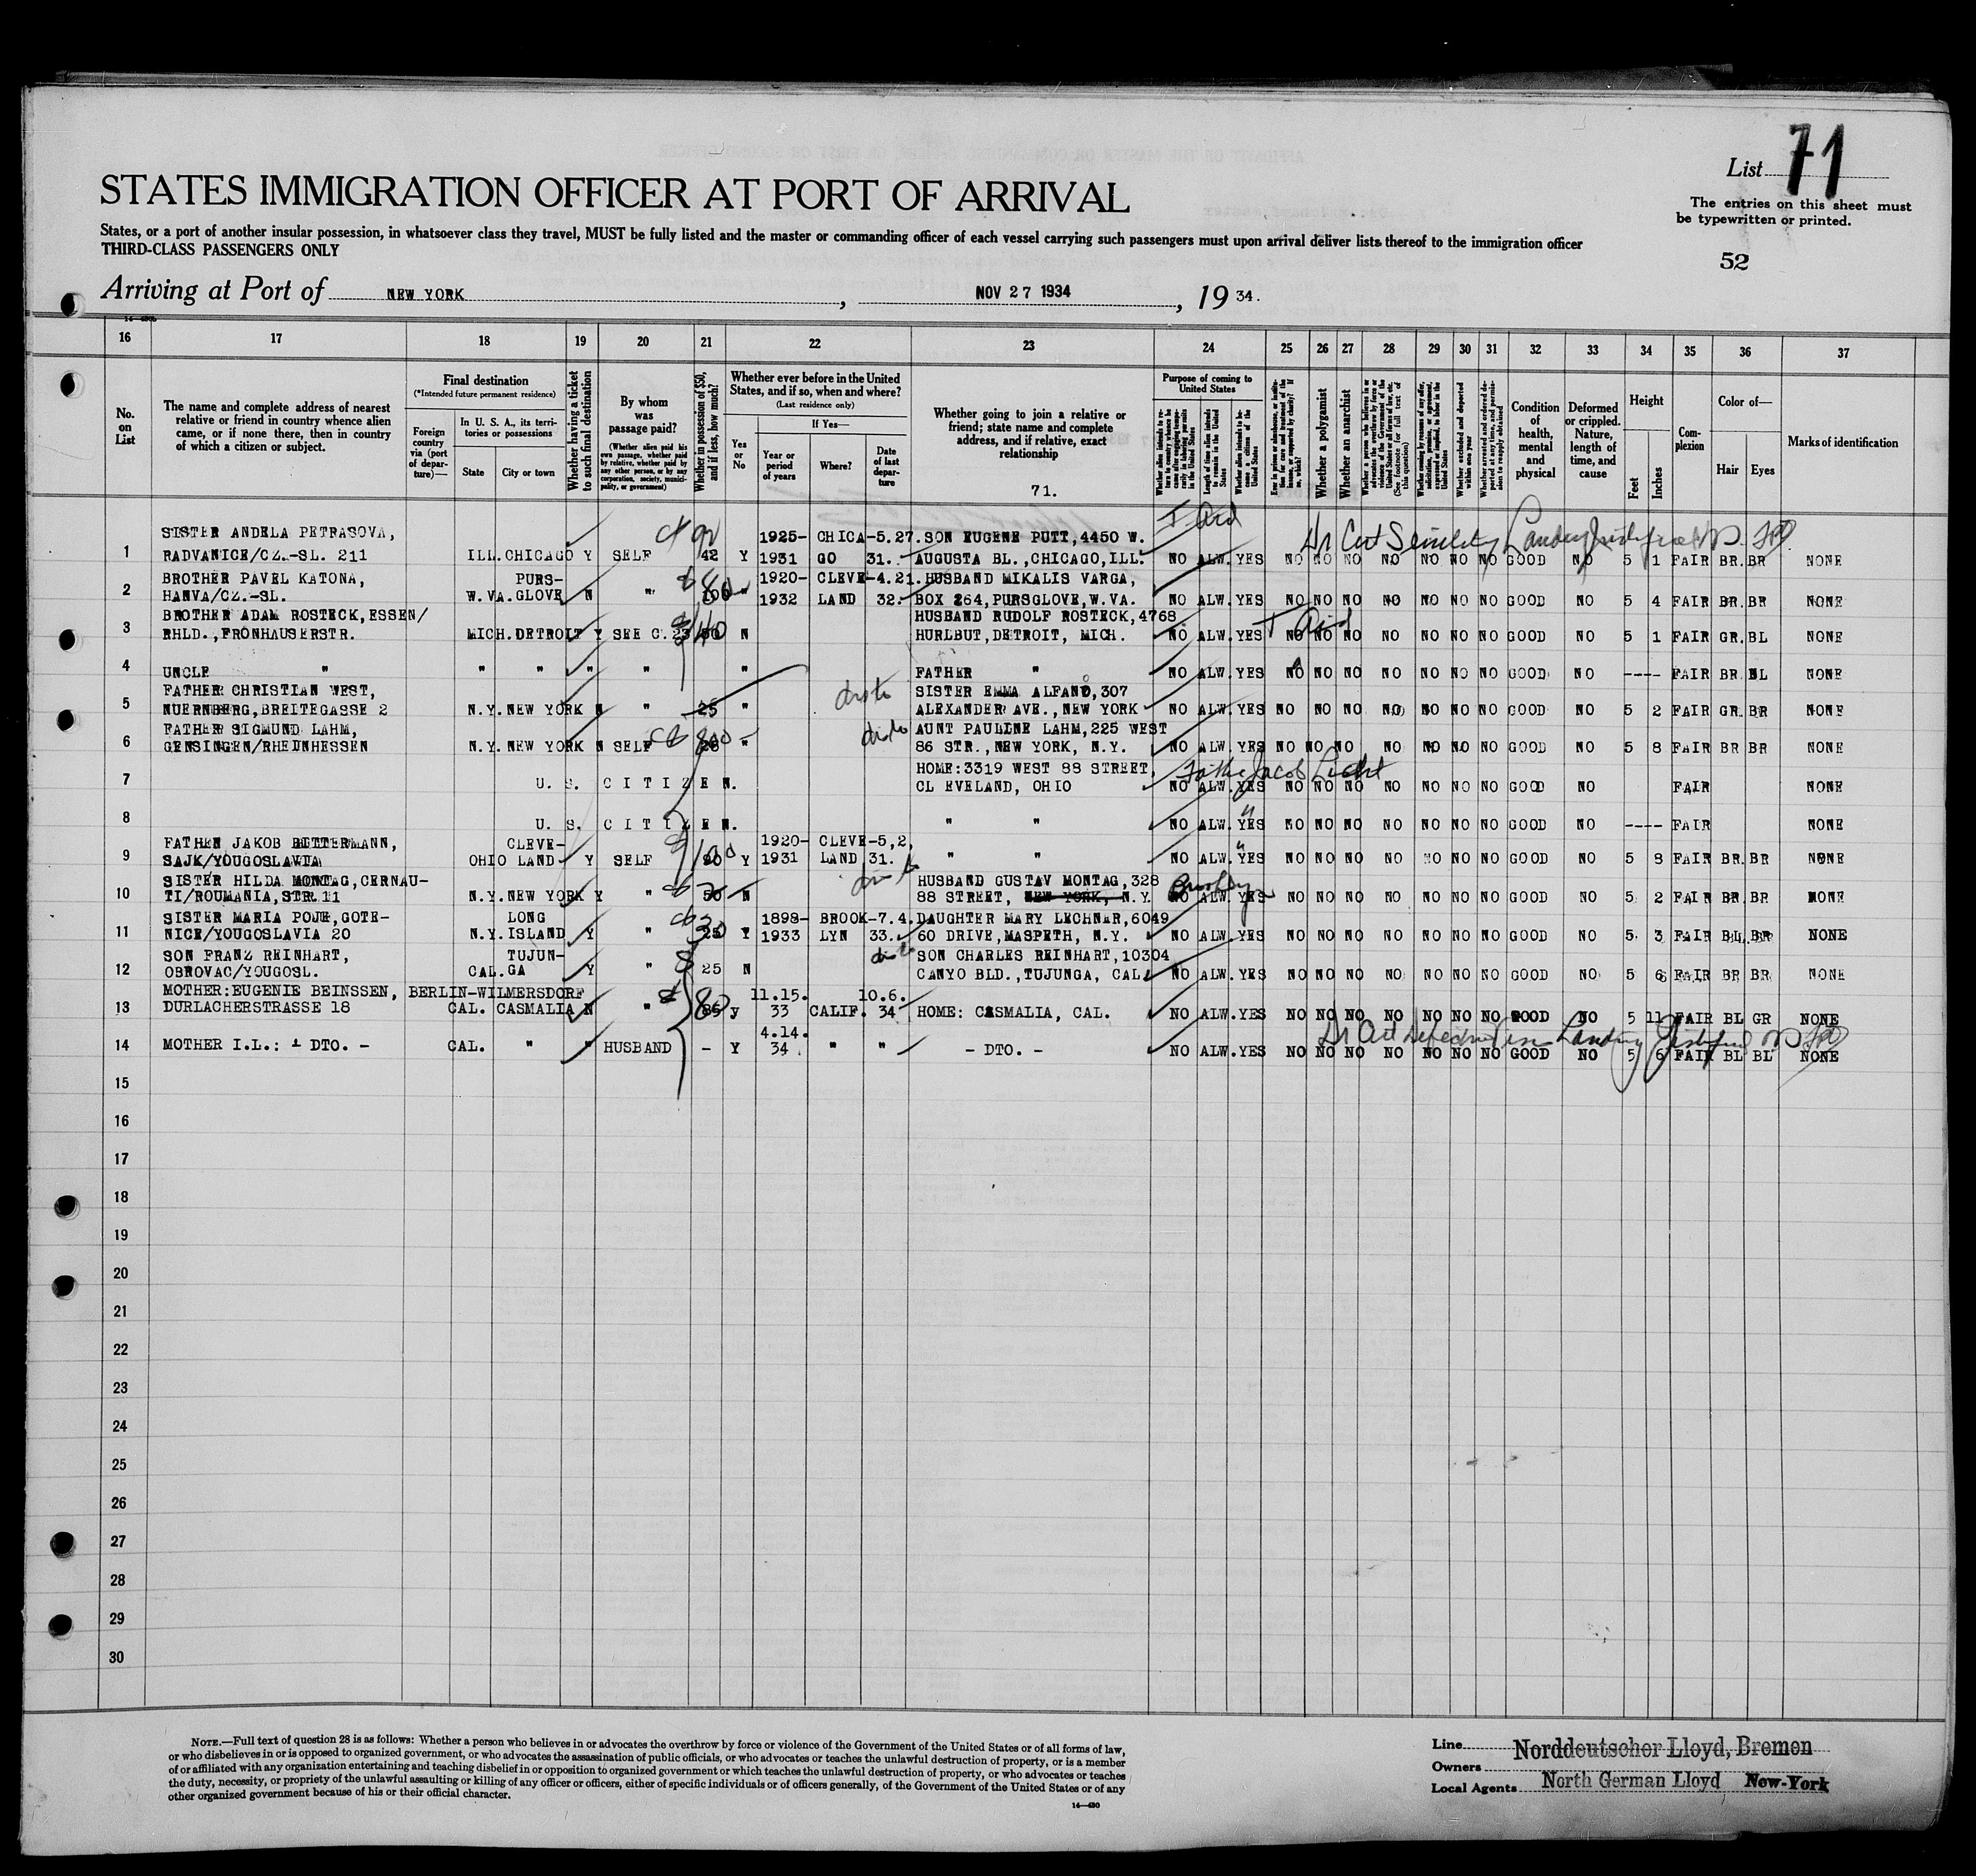 List 71
STATES IMMIGRATION OFFICER AT PORT OF ARRIVAL
The entries on this sheet must
be typewritten or printed.
States, or a port of another insular possession, in whatsoever class they travel, MUST be fully listed and the master or commanding officer of each vessel carrying such passengers must upon arrival deliver lists thereof to the immigration officer
THIRD-CLASS PASSENGERS ONLY
52
Arriving at Port of NEW YORK, NOV 27 1934, 19 34.
16 17 18 19 20 21 22 23 24 25 26 27 28 29 30 31 32 33 34 35 36 37
No. on List
The name and complete address of nearest relative or friend in country whence alien came, or if none there, then in country of which a citizen or subject.
Final destination
(*Intended future permanent residence)
Foreign country via (port of departure)—
In U. S. A., its territories or possessions
State
City or town
Whether having a ticket to such final destination
By whom was passage paid?
(Whether alien paid his own passage, whether paid by relative, whether paid by any other person, or by any corporation, society, municipality, or government)
Whether in possession of $50, and if less, how much?
Whether ever before in the United States, and if so, when and where?
(Last residence only)
Yes or No
If Yes—
Year or period of years
Where?
Date of last departure
Whether going to join a relative or friend; state name and complete address, and if relative, exact relationship
71.
Purpose of coming to United States
Length of time alien intends to remain in the United States
Whether alien intends to become a citizen of the United States
Whether a polygamist
Whether an anarchist
Condition of health, mental and physical
Deformed or crippled. Nature, length of time, and cause
Height
Feet
Inches
Complexion
Color of—
Hair
Eyes
Marks of identification
SISTER ANDELA PETRASOVA, 1925- CHICA-5.27. SON EUGENE PUTT,4450 W.
1 RADVANICE/CZ.-SL. 211 ILL. CHICAGO Y SELF 42 Y 1931 GO 31. AUGUSTA BL.,CHICAGO,ILL. NO ALW. YES NO NO NO NO NO NO NO GOOD NO 5 1 FAIR BR. BR NONE
BROTHER PAVEL KATONA, PURS- 1920- CLEVE-4.21. HUSBAND MIKALIS VARGA,
2 HANVA/CZ.-SL. W.VA. GLOVE N " 100 " 1932 LAND 32. BOX 264,PURSGLOVE,W.VA. NO ALW. YES NO NO NO NO NO NO NO GOOD NO 5 4 FAIR BR. BR NONE
BROTHER ADAM ROSTECK,ESSEN/ HUSBAND RUDOLF ROSTECK,4768
3 RHLD.,FRONHAUSERSTR. MICH. DETROIT Y SEE C.23 N HURLBUT,DETROIT, MICH. NO ALW. YES NO NO NO NO NO NO NO GOOD NO 5 1 FAIR GR. BL NONE
4 UNCLE " " " " " " FATHER " NO ALW. YES NO NO NO NO NO NO NO GOOD NO ---- FAIR BR BL NONE
FATHER CHRISTIAN WEST, SISTER EMMA ALFANO,307
5 NUERNBERG,BREITEGASSE 2 N.Y. NEW YORK N " 25 " ALEXANDER AVE.,NEW YORK NO ALW. YES NO NO NO NO NO NO NO GOOD NO 5 2 FAIR GR. BR NONE
FATHER SIGMUND LAHM, AUNT PAULINE LAHM,225 WEST
6 GENSINGEN/RHEINHESSEN N.Y. NEW YORK N SELF " 86 STR.,NEW YORK, N.Y. NO ALW. YES NO NO NO NO NO NO NO GOOD NO 5 8 FAIR BR BR NONE
HOME:3319 WEST 88 STREET, Father Jacob Licht
7 U. S. CITIZEN. CLEVELAND, OHIO NO ALW. YES NO NO NO NO NO NO NO GOOD NO FAIR NONE
8 U. S. CITIZEN. " " NO ALW. YES NO NO NO NO NO NO NO GOOD NO ---- FAIR NONE
FATHER JAKOB BITTERMANN, CLEVE- 1920- CLEVE-5,2,
9 SAJK/YOUGOSLAVIA OHIO LAND Y SELF Y 1931 LAND 31. " " NO ALW. YES NO NO NO NO NO NO NO GOOD NO 5 8 FAIR BR. BR NONE
SISTER HILDA MONTAG,CERNAU- HUSBAND GUSTAV MONTAG,328 Brooklyn
10 TI/ROUMANIA,STR.11 N.Y. NEW YORK Y " 50 N 88 STREET, NEW YORK, N.Y. NO ALW. YES NO NO NO NO NO NO NO GOOD NO 5 2 FAIR BR. BR NONE
SISTER MARIA POJE,GOTE- LONG 1898- BROOK-7.4. DAUGHTER MARY LECHNER,6049
11 NICE/YOUGOSLAVIA 20 N.Y. ISLAND Y " 25 Y 1933 LYN 33. 60 DRIVE,MASPETH, N.Y. NO ALW. YES NO NO NO NO NO NO NO GOOD NO 5 3 FAIR BL. BR NONE
SON FRANZ REINHART, TUJUN- SON CHARLES REINHART,10304
12 OBROVAC/YOUGOSL. CAL. GA Y " 25 N CANYO BLD.,TUJUNGA, CAL. NO ALW. YES NO NO NO NO NO NO NO GOOD NO 5 6 FAIR BR BR NONE
MOTHER:EUGENIE BEINSSEN, BERLIN-WILMERSDORF 11.15. 10.6.
13 DURLACHERSTRASSE 18 CAL. CASMALIA N " y 33 CALIF. 34 HOME: CASMALIA, CAL. NO ALW. YES NO NO NO NO NO NO NO GOOD NO 5 11 FAIR BL GR NONE
4.14.
14 MOTHER I.L.: - DTO. - CAL. " " HUSBAND - Y 34 " " - DTO. - NO ALW. YES NO NO NO NO NO NO NO GOOD NO 5 6 FAIR BL BL NONE
15
16
17
18
19
20
21
22
23
24
25
26
27
28
29
30
NOTE.—Full text of question 28 is as follows: Whether a person who believes in or advocates the overthrow by force or violence of the Government of the United States or of all forms of law,
or who disbelieves in or is opposed to organized government, or who advocates the assassination of public officials, or who advocates or teaches the unlawful destruction of property, or is a member
of or affiliated with any organization entertaining and teaching disbelief in or opposition to organized government or which teaches the unlawful destruction of property, or who advocates or teaches
the duty, necessity, or propriety of the unlawful assaulting or killing of any officer or officers, either of specific individuals or of officers generally, of the Government of the United States or of any
other organized government because of his or their official character.
14—430
Line Norddeutscher Lloyd, Bremen
Owners
Local Agents North German Lloyd New-York